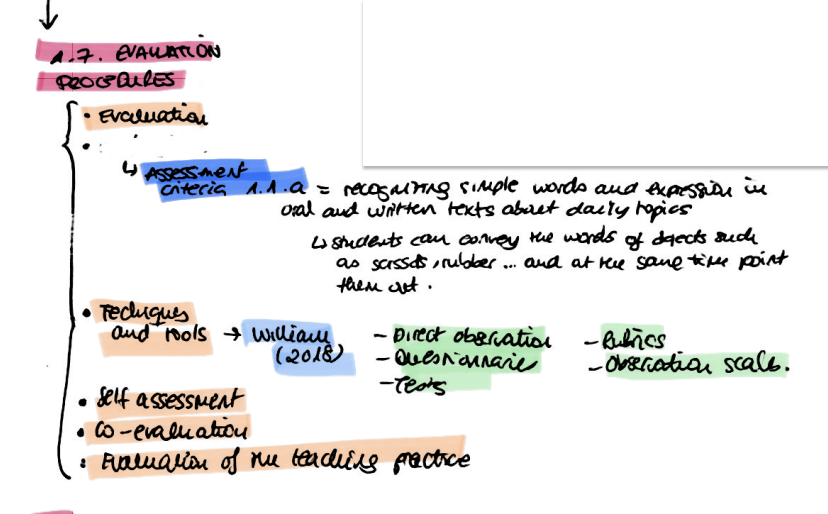 1.7. EVALUATION
PROCEDURES
• Evaluation
•
↳ Assessment
criteria 1.1.a = recognizing simple words and expression in
oral and written texts about daily topics
↳ students can convey the words of objects such
as scissors, rubber ... and at the same time point
them out.
• Techniques
and tools → William
(2018)
- Direct observation
- Questionnaires
- Tests
- Rubrics
- Observation scale.
• Self assessment
• Co-evaluation
• Evaluation of the teaching practice